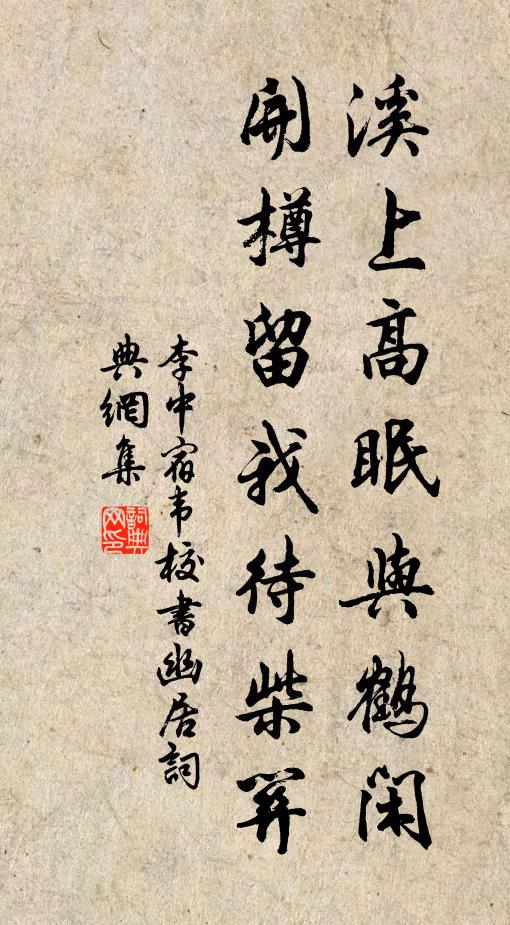 溪上高眠與鶴閑
開樽留我待柴關
李中宿韦校書幽居詞
典網集
詞典
网印